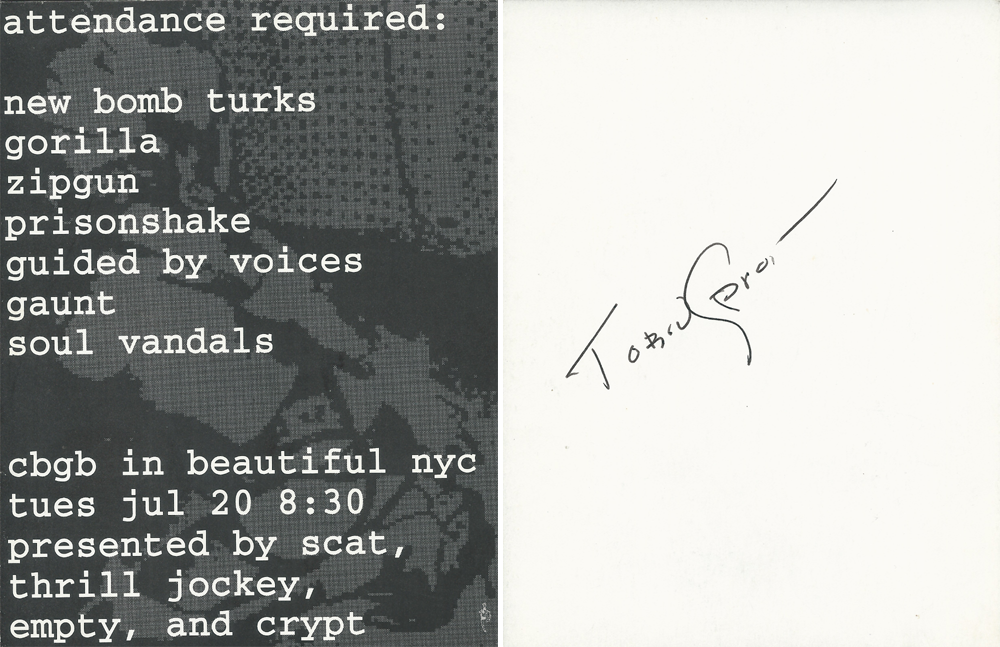 attendance required:
new bomb turks
gorilla
zipgun
prisonshake
guided by voices
gaunt
soul vandals
cbgb in beautiful nyc
tues jul 20 8:30
presented by scat,
thrill jockey,
empty, and crypt